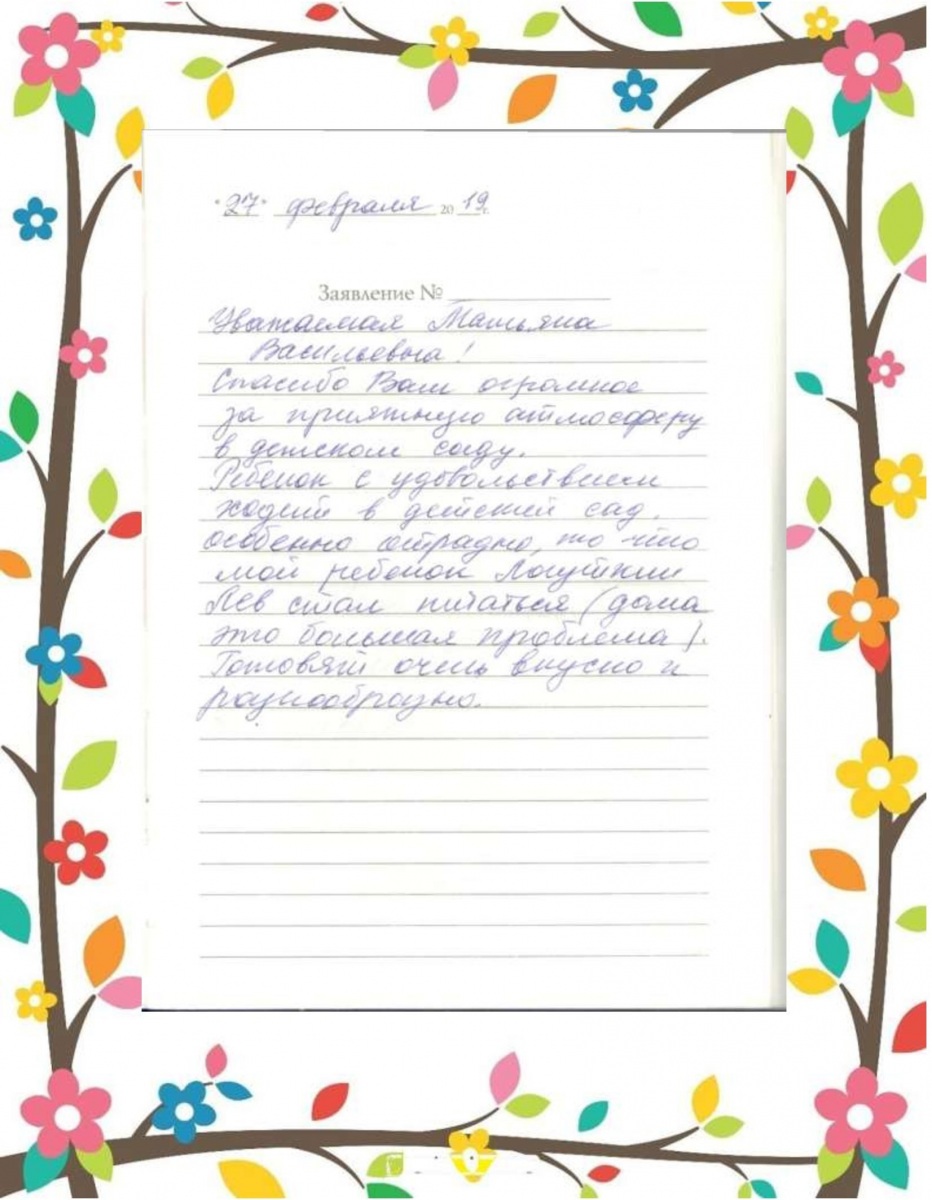 "27" февраля 20 19 г.
Заявление №
Уважаемая Татьяна
Васильевна!
Спасибо Вам огромное
за приятную атмосферу
в детском саду.
Ребенок с удовольствием
ходит в детский сад.
особенно отрадно, то что
мой ребенок Логуткин
Лев стал питаться (дома
это большая проблема).
Готовят очень вкусно и
разнообразно.